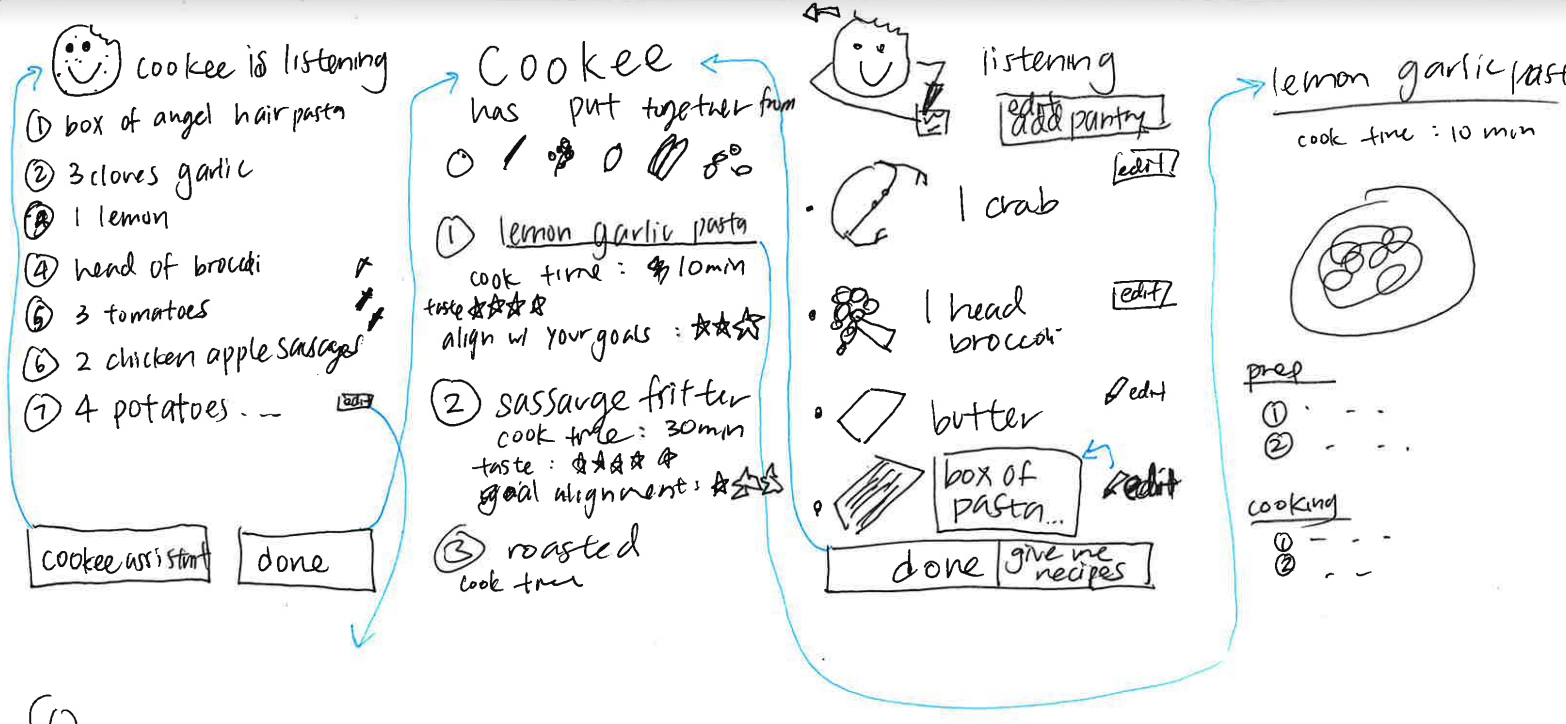 cookee is listening
① box of angel hair pasta
② 3 cloves garlic
1 lemon
④ head of broccoli
⑤ 3 tomatoes
⑥ 2 chicken apple sausages
⑦ 4 potatoes...
edit
cookee assistant
done
Cookee
has put together from
① lemon garlic pasta
cook time : 10min
taste
align w/ your goals :
② sassauge fritter
cook time : 30min
taste :
goal alignment :
③ roasted
cook time
listening
edit
add pantry
edit
1 crab
edit
1 head
broccoli
edit
butter
box of
pasta...
edit
done
give me
recipes
lemon garlic past
cook time : 10 min
prep
①
②
cooking
①
②